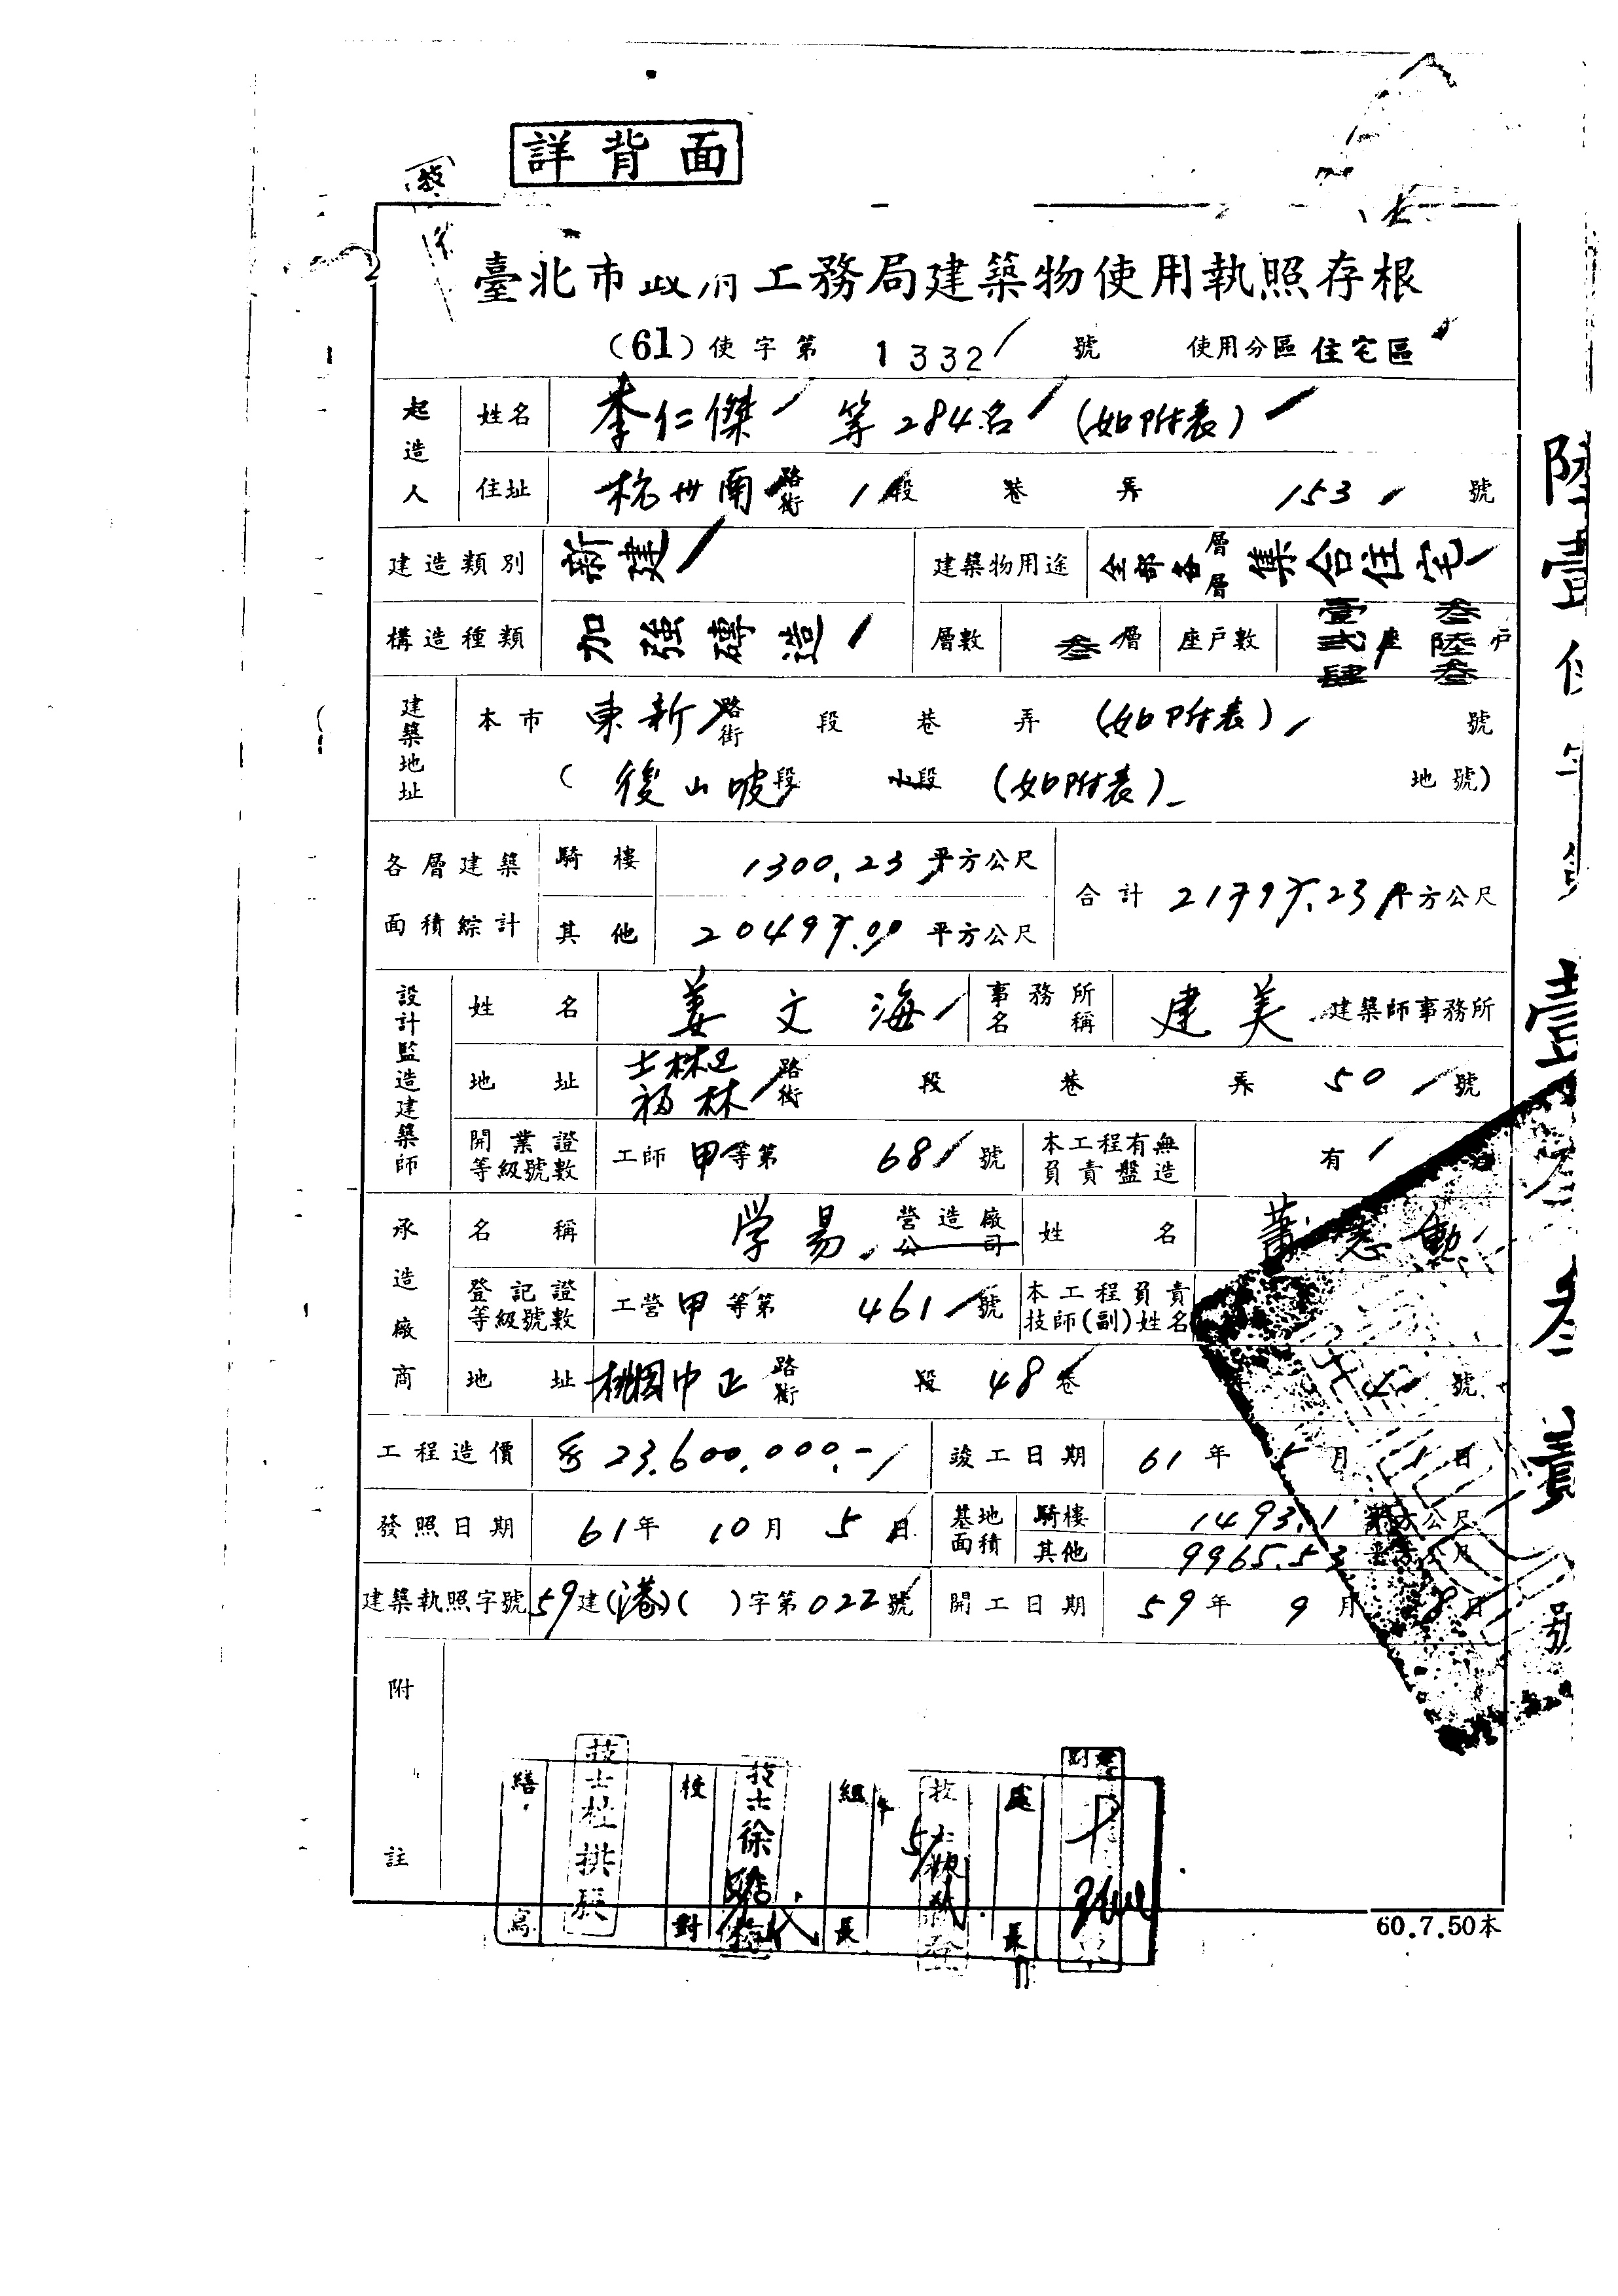 詳背面
臺北市政府工務局建築物使用執照存根
(61)使字第 1332 號 使用分區 住宅區
起造人 姓名 李仁傑 等284名 (如附表)
住址 杭州南路街 1段 巷 弄 153 號
建造類別 新建 建築物用途 全部各層層 集合住宅
構造種類 加強磚造 層數 叁層 座戶數 壹貳肆座 叁陸叁戶
建築地址 本市 東新路街 段 巷 弄 (如附表) 號
(後山坡段 小段 (如附表) 地號)
各層建築面積綜計 騎樓 1300.23 平方公尺 合計 平方公尺
其他 平方公尺
設計監造建築師 姓名 姜文海 事務所名稱 建美 建築師事務所
地址 士林區福林路街 段 巷 弄 50 號
開業證等級號數 工師 甲等第 68 號 本工程有無負責盤造 有
承造廠商 名稱 学易 營造廠公司 姓名
登記證等級號數 工營 甲等第 461 號 本工程負責技師(副)姓名
地址 桃園中正路街 段 48巷 號
工程造價 23.600.000.- 竣工日期 61年 5月 1日
發照日期 61年 10月 5日 基地面積 騎樓 1493.1 平方公尺
其他 9965.53 平方公尺
建築執照字號 59建(港)( )字第022號 開工日期 59年 9月 8日
附註
繕寫 技士杜拱辰 校對 技士徐 代 組長 處長
60.7.50本